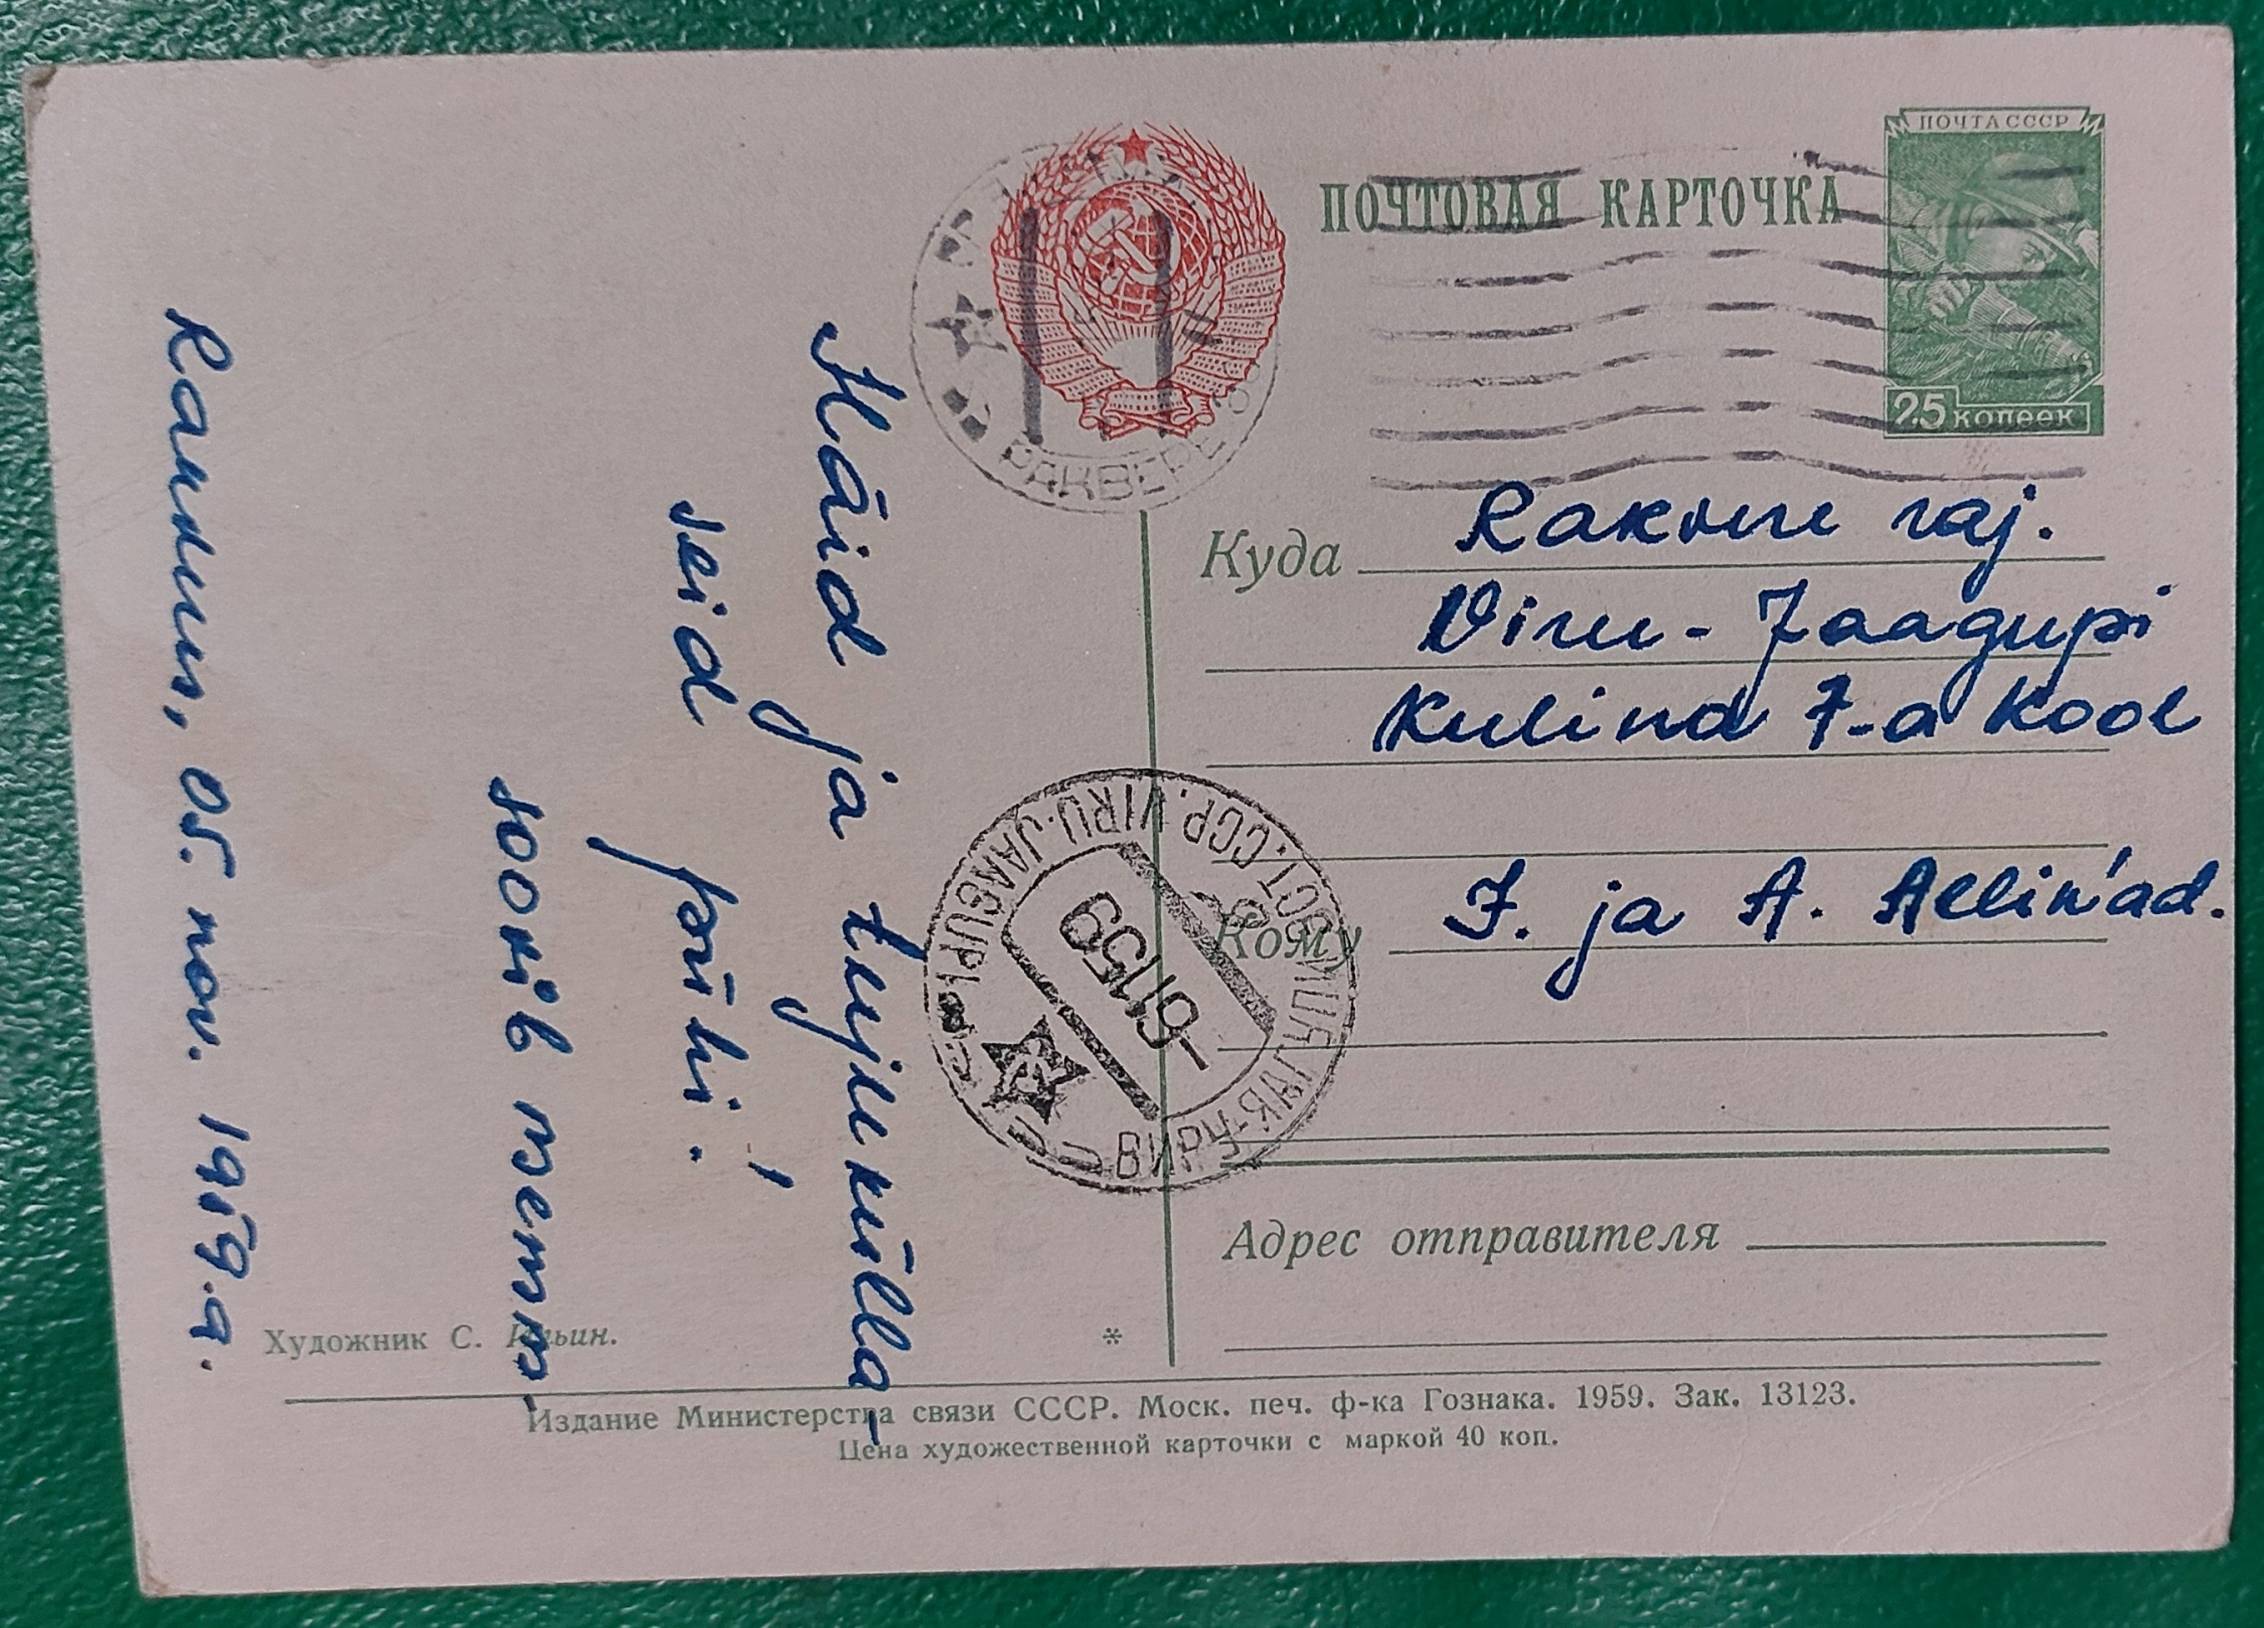 ПОЧТА СССР
ПОЧТОВАЯ КАРТОЧКА
25 КОПЕЕК
РАКВЕРЕ
Häid ja tujukülla-
seid pühi!
soovib
Rakvere, 05. nov. 1959.a.
Куда
Rakvere raj.
Viru-Jaagupi
Kulina 7-a Kool
Кому
J. ja A. Allin'ad.
ВИРУ-ЯАГУПИ ЭСТ. ССР. VIRU-JAAGUPI
-61159
Адрес отправителя
Художник С. Ильин.
*
Издание Министерства связи СССР. Моск. печ. ф-ка Гознака. 1959. Зак. 13123.
Цена художественной карточки с маркой 40 коп.